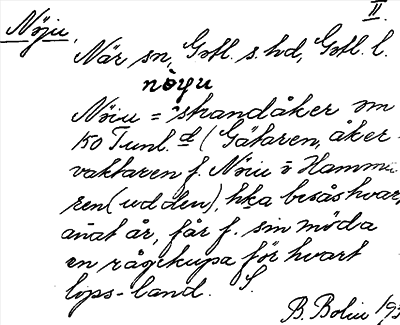 II.
Nöju,
När sn, Gotl. s. hd, Gotl. l.
nòyu
Nöiu = strandåker om
150 Tunl. d (Gätaren, åker-
vaktaren f. Nöiu ō Hammu
ren (udden), hka besås hvar,
añat år, får f. sin möda
en rågskupa för hvart
löps-land. S.
B. Bolin 193